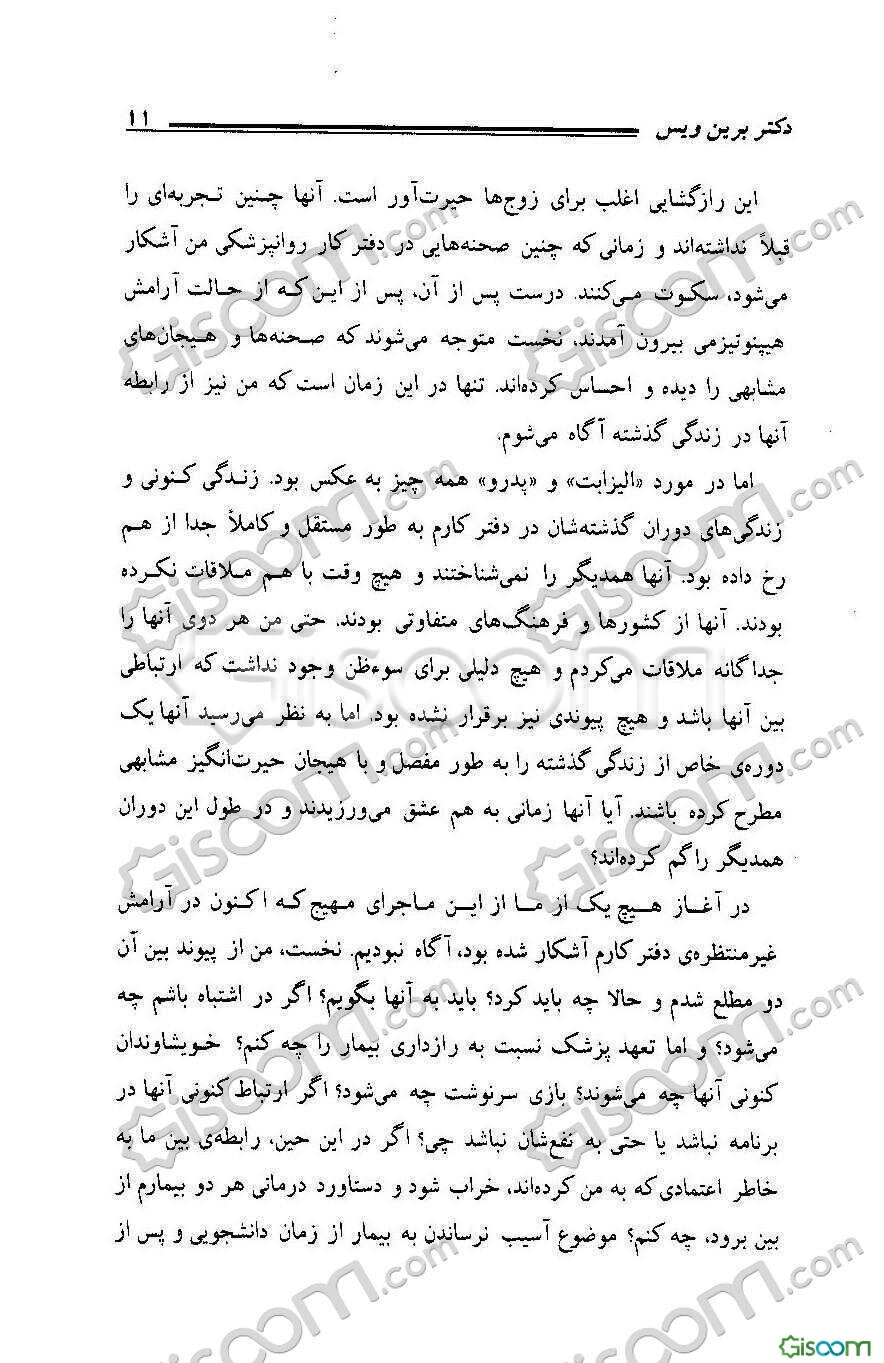 دکتر برین ویس ۱۱
این رازگشایی اغلب برای زوج‌ها حیرت‌آور است. آنها چنین تجربه‌ای را
قبلاً نداشته‌اند و زمانی که چنین صحنه‌هایی در دفتر کار روانپزشکی من آشکار
می‌شود، سکوت می‌کنند. درست پس از آن، پس از این که از حالت آرامش
هیپنوتیزمی بیرون آمدند، نخست متوجه می‌شوند که صحنه‌ها و هیجان‌های
مشابهی را دیده و احساس کرده‌اند. تنها در این زمان است که من نیز از رابطه
آنها در زندگی گذشته آگاه می‌شوم.
اما در مورد «الیزابت» و «پدرو» همه چیز به عکس بود. زندگی کنونی و
زندگی‌های دوران گذشته‌شان در دفتر کارم به طور مستقل و کاملاً جدا از هم
رخ داده بود. آنها همدیگر را نمی‌شناختند و هیچ وقت با هم ملاقات نکرده
بودند. آنها از کشورها و فرهنگ‌های متفاوتی بودند. حتی من هر دوی آنها را
جداگانه ملاقات می‌کردم و هیچ دلیلی برای سوءظن وجود نداشت که ارتباطی
بین آنها باشد و هیچ پیوندی نیز برقرار نشده بود. اما به نظر می‌رسید آنها یک
دوره‌ی خاص از زندگی گذشته را به طور مفصل و با هیجان حیرت‌انگیز مشابهی
مطرح کرده باشند. آیا آنها زمانی به هم عشق می‌ورزیدند و در طول این دوران
همدیگر را گم کرده‌اند؟
در آغاز هیچ یک از ما از این ماجرای مهیج که اکنون در آرامش
غیرمنتظره‌ی دفتر کارم آشکار شده بود، آگاه نبودیم. نخست، من از پیوند بین آن
دو مطلع شدم و حالا چه باید کرد؟ باید به آنها بگویم؟ اگر در اشتباه باشم چه
می‌شود؟ و اما تعهد پزشک نسبت به رازداری بیمار را چه کنم؟ خویشاوندان
کنونی آنها چه می‌شوند؟ بازی سرنوشت چه می‌شود؟ اگر ارتباط کنونی آنها در
برنامه نباشد یا حتی به نفع‌شان نباشد چی؟ اگر در این حین، رابطه‌ی بین ما به
خاطر اعتمادی که به من کرده‌اند، خراب شود و دستاورد درمانی هر دو بیمارم از
بین برود، چه کنم؟ موضوع آسیب نرساندن به بیمار از زمان دانشجویی و پس از
Gisoom.com
Gisoom.com
Gisoom.com
Gisoom.com
Gisoom
Gisoom.com
Gisoom.com
Gisoom.com
Gisoom.com
Gisoom.com
Gisoom.com
Gisoom